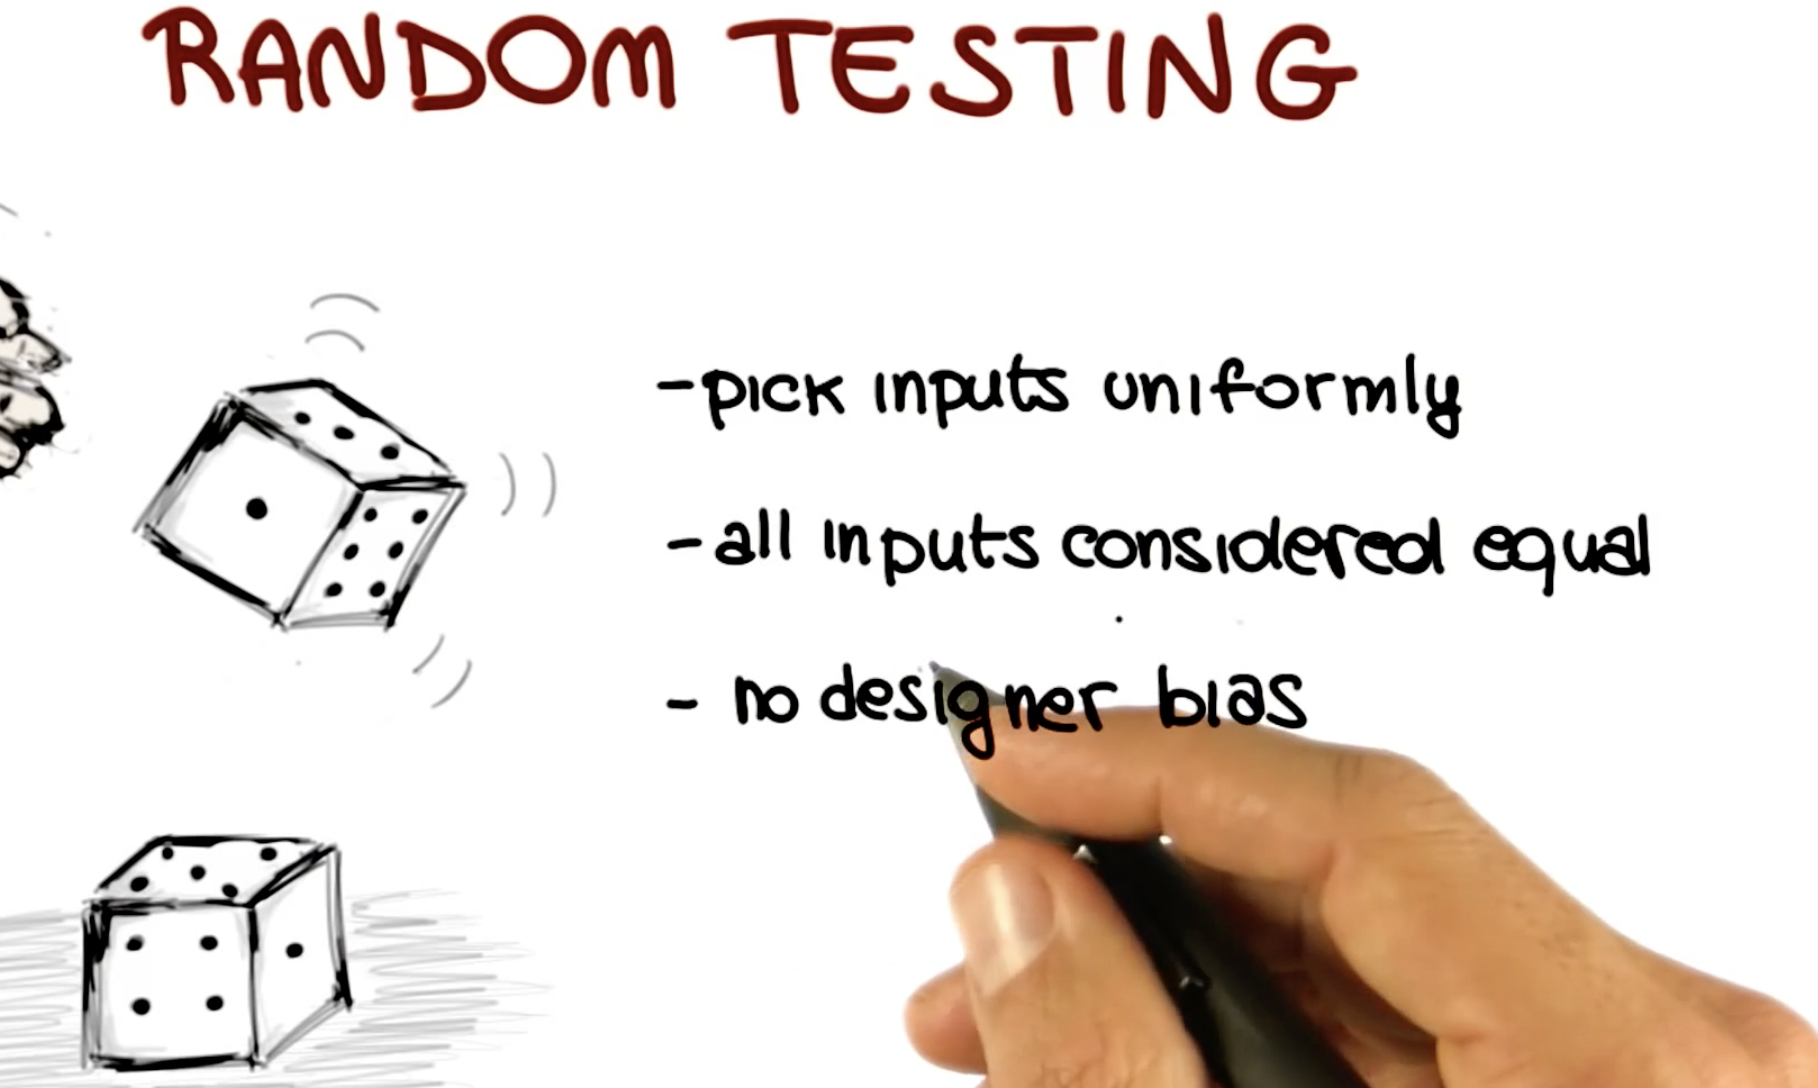 RANDOM TESTING
-pick inputs uniformly
-all inputs considered equal
- no designer bias